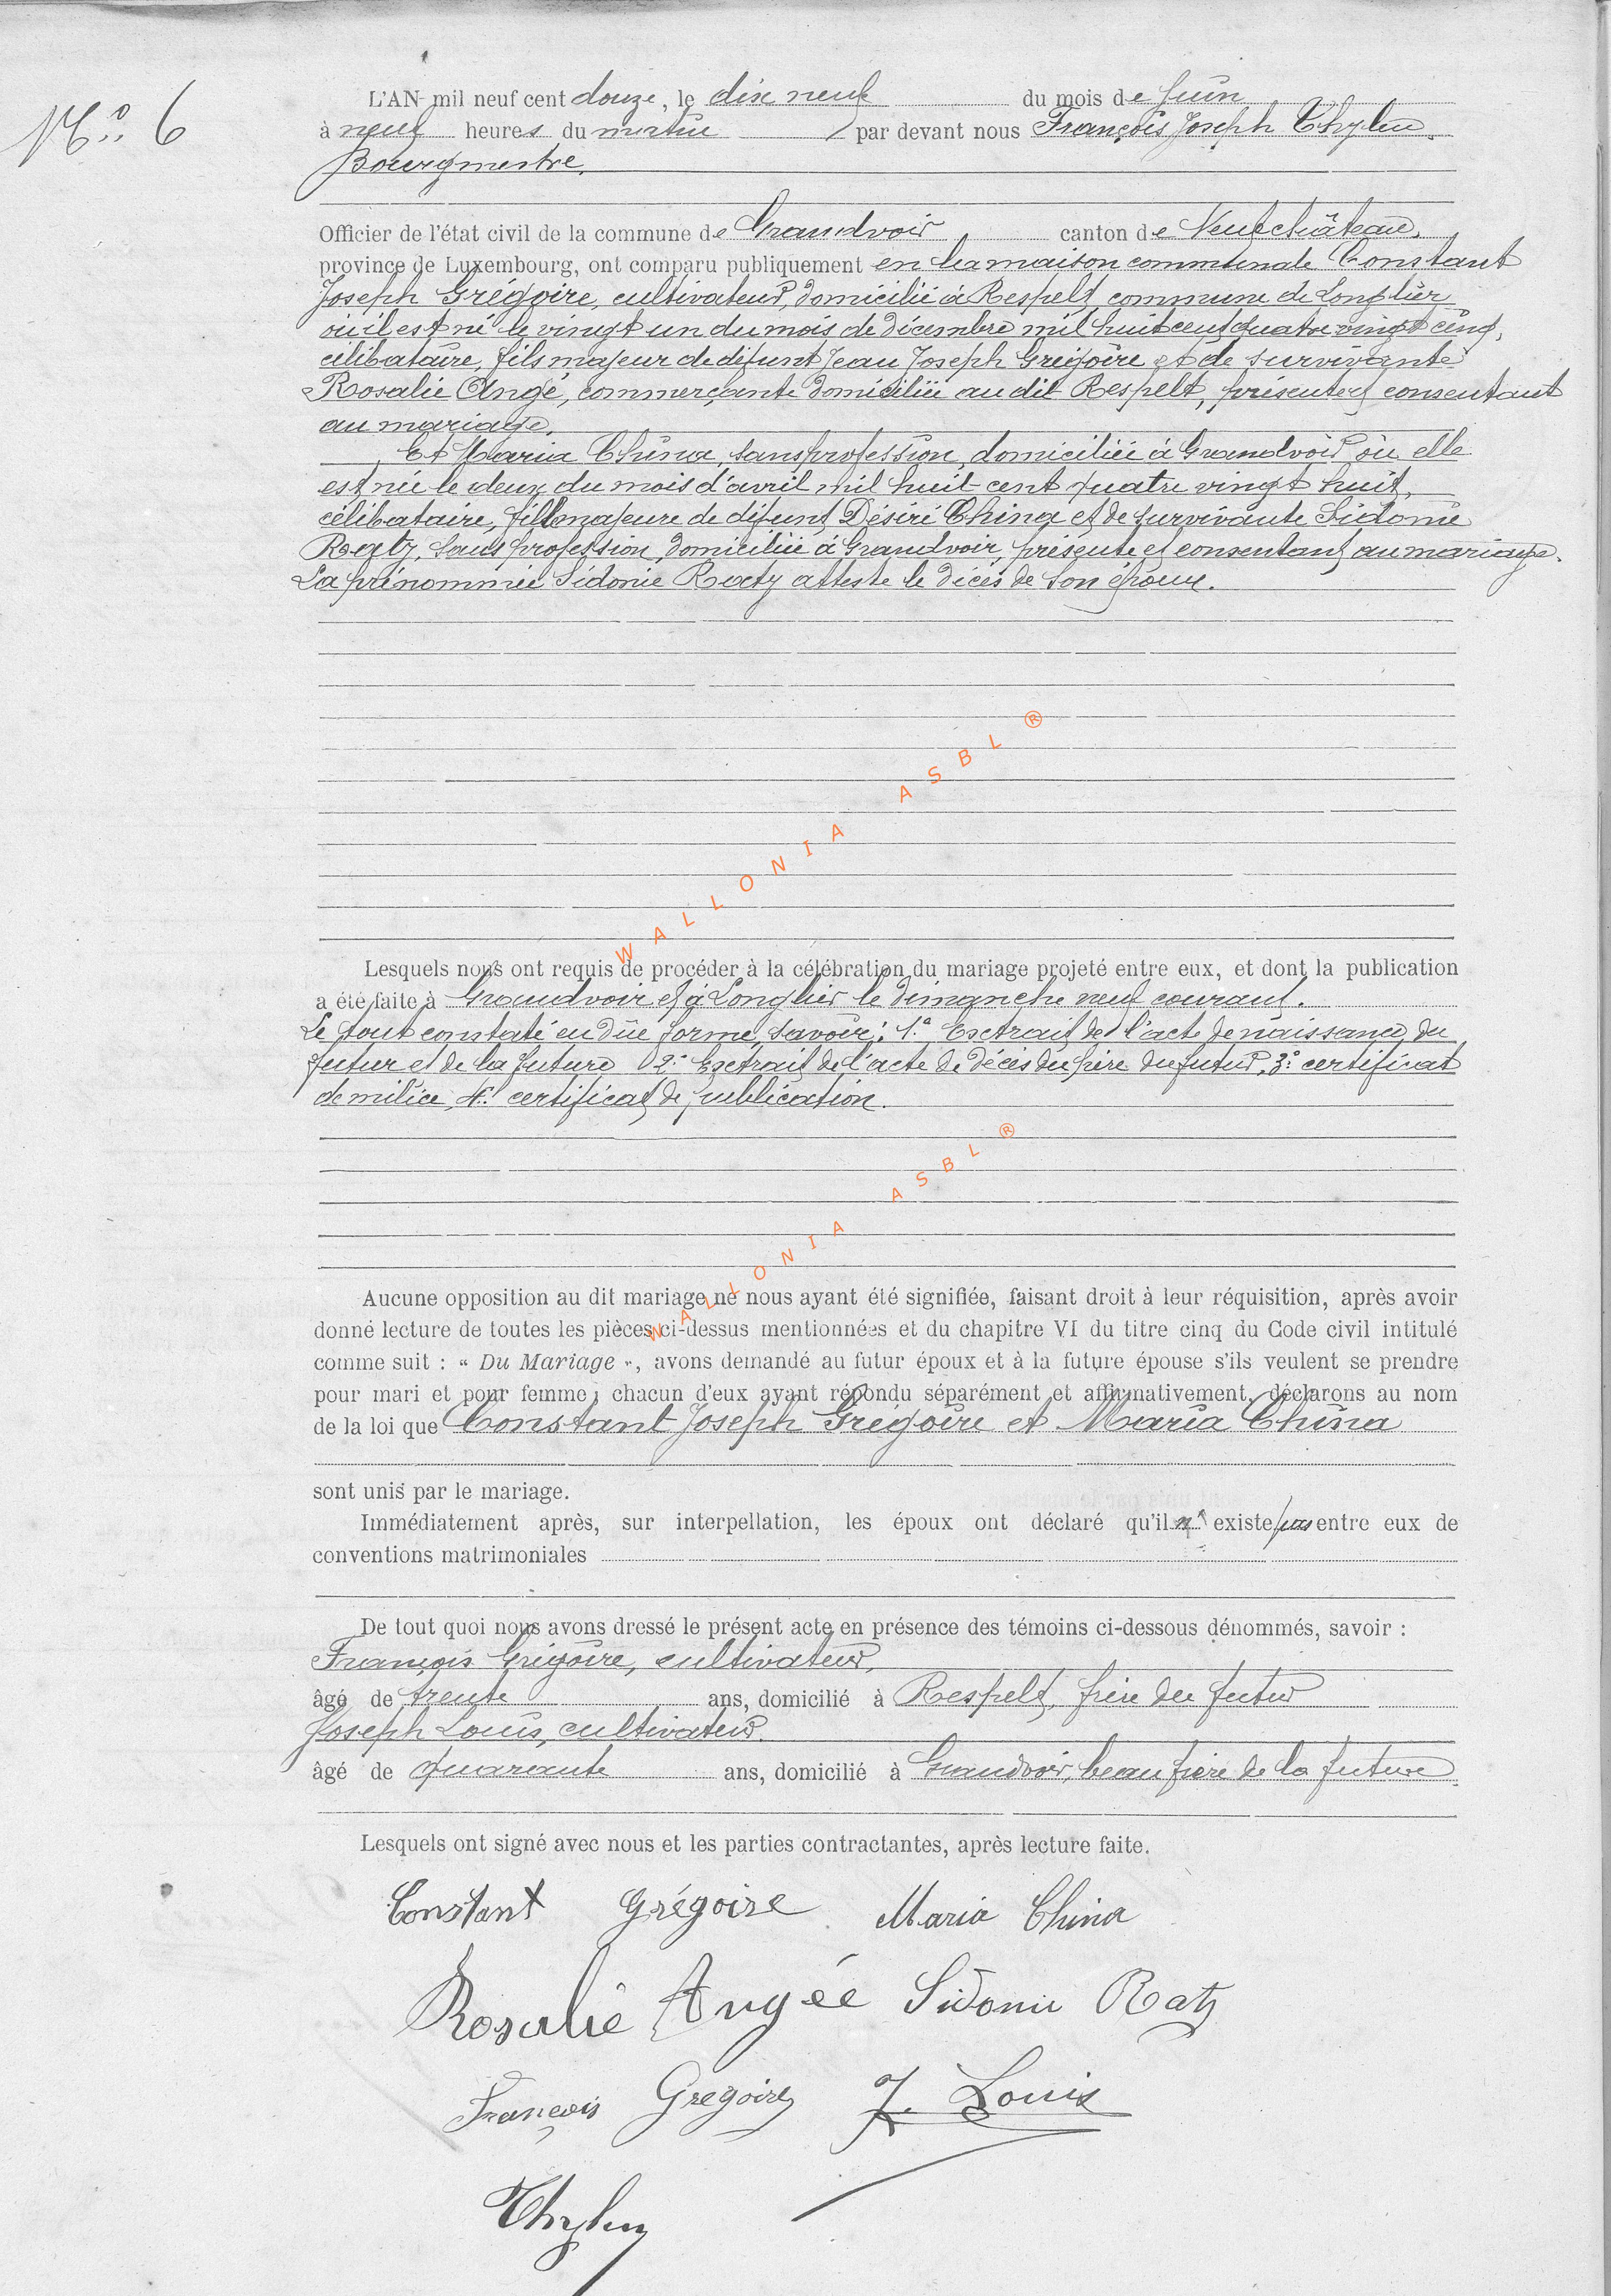 N° 6
L'AN mil neuf cent douze, le dix neuf du mois de Juin
à neuf heures du matin par devant nous François Joseph Thylen
Bourgmestre,
Officier de l'état civil de la commune de Grandvoir canton de Neufchâteau,
province de Luxembourg, ont comparu publiquement en la maison communale Constant
Joseph Grégoire, cultivateur, domicilié à Respelt, commune de Longlier
où il est né le vingt un du mois de décembre mil huit cent quatre vingt cinq,
célibataire, fils majeur de défunt Jean Joseph Grégoire et de survivante
Rosalie Angé, commerçante domiciliée au dit Respelt, présente et consentant
au mariage.
Et Maria China, sans profession, domiciliée à Grandvoir où elle
est née le deux du mois d'avril mil huit cent quatre vingt huit,
célibataire, fille majeure de défunt Désiré China et de survivante Sidonie
Raty, sans profession, domiciliée à Grandvoir, présente et consentant au mariage.
La prénommée Sidonie Raty atteste le décès de son époux.
WALLONIA ASBL ®
Lesquels nous ont requis de procéder à la célébration du mariage projeté entre eux, et dont la publication
a été faite à Grandvoir et à Longlier le dimanche neuf courant.
Le tout constaté en due forme, savoir: 1° Extrait de l'acte de naissance du
futur et de la future 2° Extrait de l'acte de décès du père du futur, 3° certificat
de milice, 4° certificat de publication.
WALLONIA ASBL ®
Aucune opposition au dit mariage ne nous ayant été signifiée, faisant droit à leur réquisition, après avoir
donné lecture de toutes les pièces ci-dessus mentionnées et du chapitre VI du titre cinq du Code civil intitulé
comme suit : « Du Mariage », avons demandé au futur époux et à la future épouse s'ils veulent se prendre
pour mari et pour femme ; chacun d'eux ayant répondu séparément et affirmativement, déclarons au nom
de la loi que Constant Joseph Grégoire et Maria China
sont unis par le mariage.
Immédiatement après, sur interpellation, les époux ont déclaré qu'il n' existe pas entre eux de
conventions matrimoniales
De tout quoi nous avons dressé le présent acte en présence des témoins ci-dessous dénommés, savoir :
François Grégoire, cultivateur,
âgé de trente ans, domicilié à Respelt, frère du futur
Joseph Louis, cultivateur.
âgé de quarante ans, domicilié à Grandvoir, beau frère de la future
Lesquels ont signé avec nous et les parties contractantes, après lecture faite.
Constant Grégoire Maria China
Rosalie Angée Sidonie Raty
François Gregoire J. Louis
Thylen